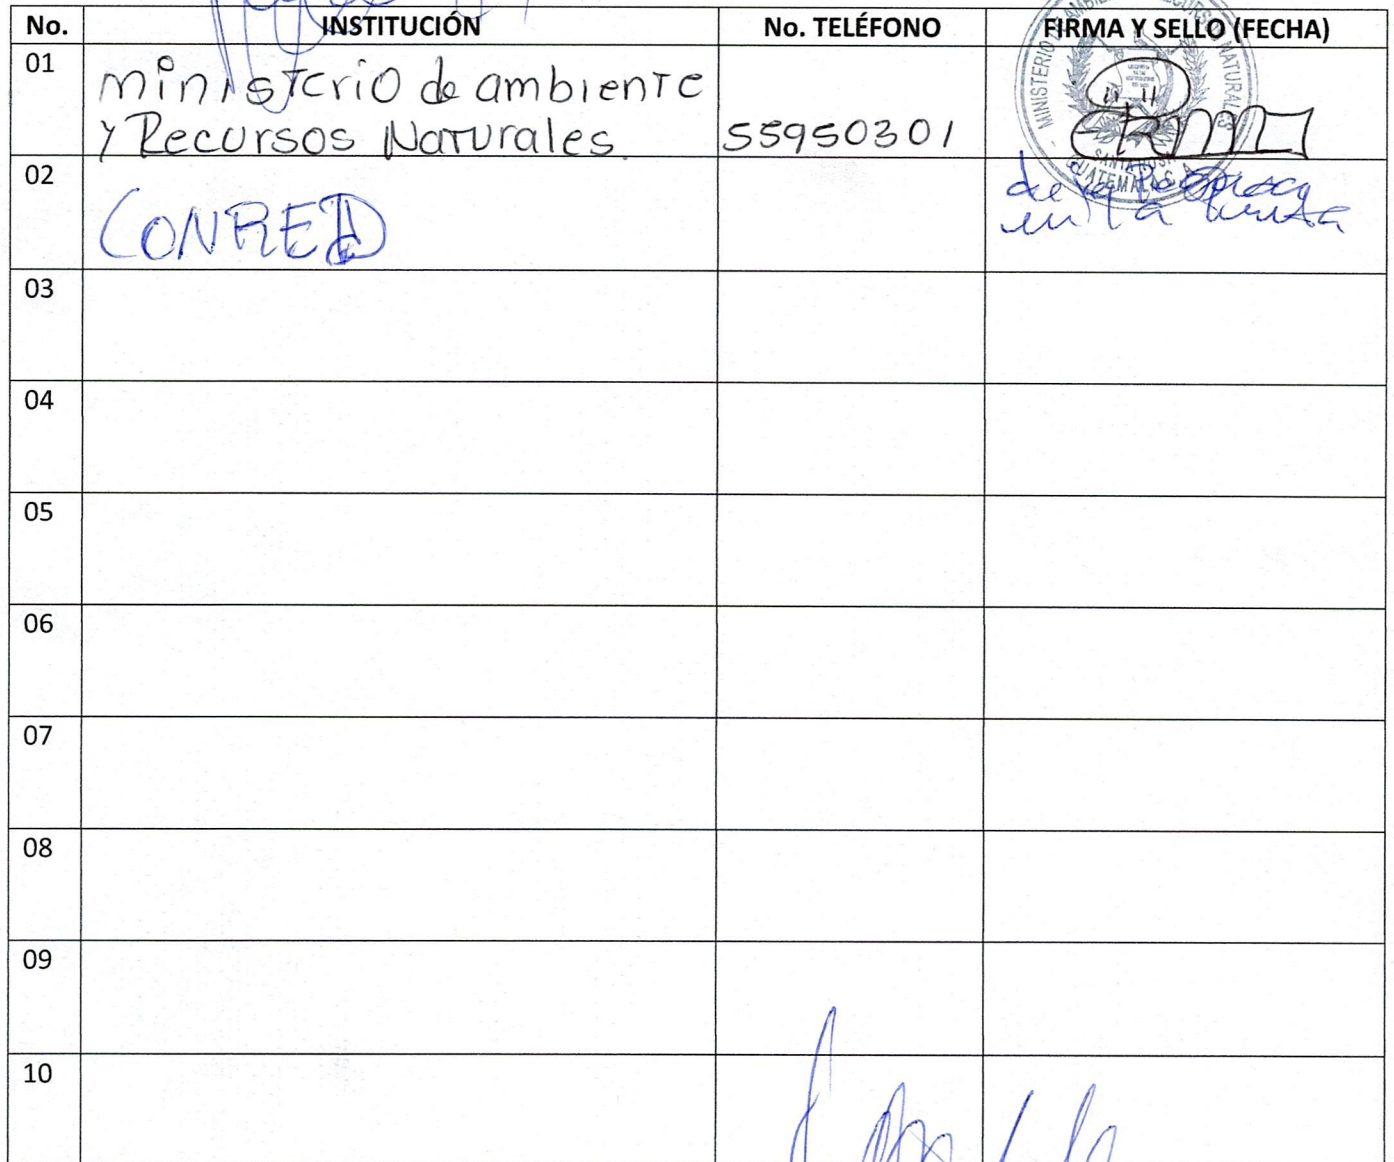 No. INSTITUCIÓN No. TELÉFONO FIRMA Y SELLO (FECHA)
01 Ministerio de ambiente
y Recursos Naturales. 55950301
MINISTERIO DE AMBIENTE NATURALES
SANTA ROSA
GUATEMALA, C. A.
02 CONRED
en la
03
04
05
06
07
08
09
10